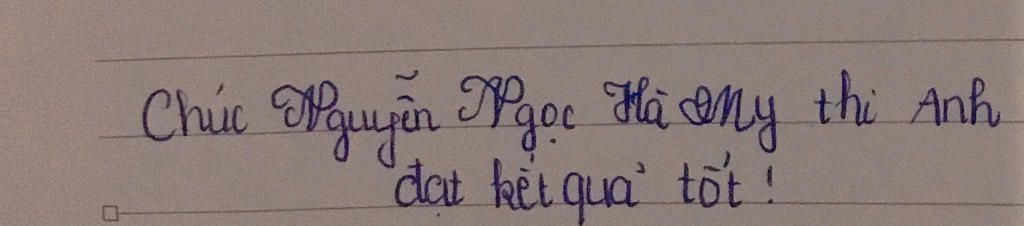 Chúc Nguyễn Ngọc Hà My thi Anh
đạt kết quả tốt !